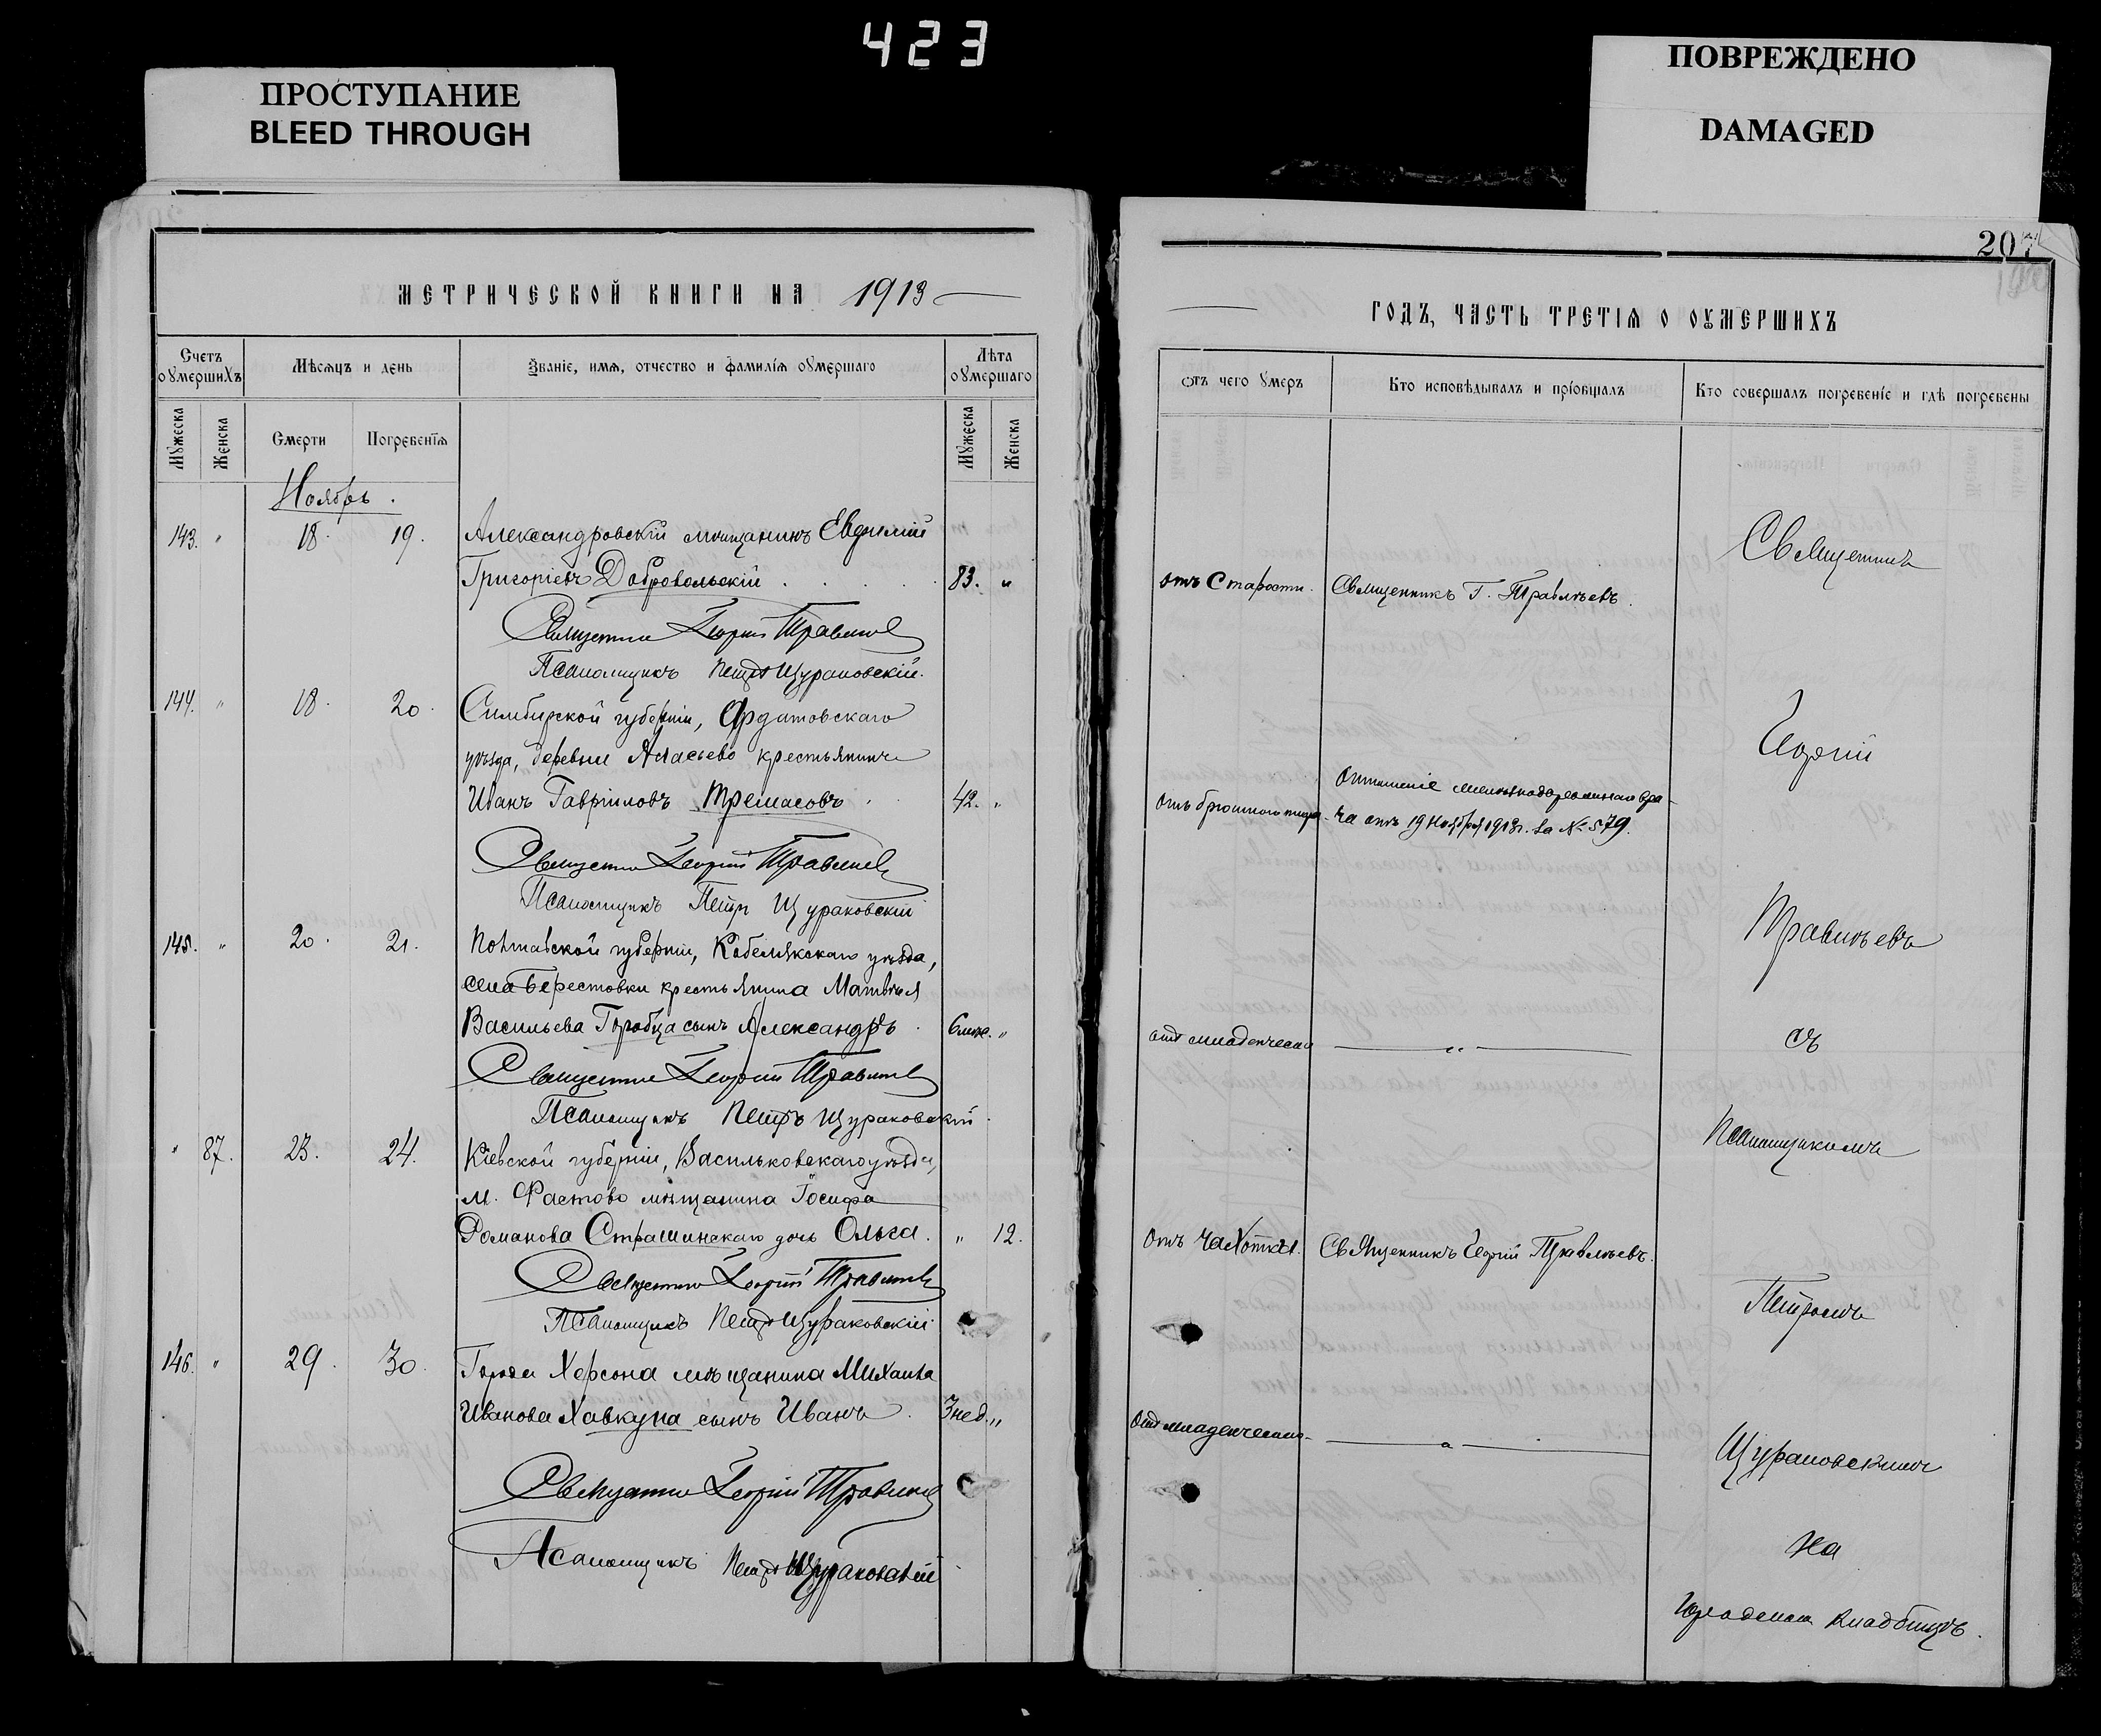 423
ПРОСТУПАНИЕ
BLEED THROUGH
ПОВРЕЖДЕНО
DAMAGED
МЕТРИЧЕСКОЙ КНИГИ НА 1913
Счетъ оумершихъ
Мѣсяцъ и день
Званіе, имя, отчество и фамилія оумершаго
Лѣта оумершаго
Мужеска
Женска
Смерти
Погребенія
Мужеска
Женска
Ноябрь.
143. " 18. 19. Александровскій мѣщанинъ Евфимій
Григоріевъ Добровольскій . . . . . 83. "
Священникъ Георгій Травлѣевъ
Псаломщикъ Петръ Щураковскій.
144. " 18. 20. Симбирской губерніи, Ардатовскаго
уѣзда, деревни Атасьево крестьянинъ
Иванъ Гавріиловъ Тремасовъ . . 42. "
Священникъ Георгій Травлѣевъ
Псаломщикъ Петръ Щураковскій
145. " 20. 21. Полтавской губерніи, Кобелякскаго уѣзда,
села Берестовки крестьянина Матвѣя
Васильева Горобца сынъ Александръ . 6 мѣс. "
Священникъ Георгій Травлѣевъ
Псаломщикъ Петръ Щураковскій.
" 87. 23. 24. Кіевской губерніи, Васильковскаго уѣзда,
м. Фастово мѣщанина Іосифа
Романова Страшинскаго дочь Ольга. " 12.
Священникъ Георгій Травлѣевъ
Псаломщикъ Петръ Щураковскій
146. " 29. 30. Города Херсона мѣщанина Михаила
Иванова Хавкуна сынъ Иванъ . 3 нед. "
Священникъ Георгій Травлѣевъ
Псаломщикъ Петръ Щураковскій
207
ГОДЪ, ЧАСТЬ ТРЕТІЯ О ОУМЕРШИХЪ
Отъ чего умеръ
Кто исповѣдывалъ и пріобщалъ
Кто совершалъ погребеніе и гдѣ погребены
Священникъ
отъ Старости. Священникъ Г. Травлѣевъ.
Георгій
Отношеніе
отъ брюшного тифа ча отъ 19 Ноября 1913 г. за № 579.
Травлѣевъ
отъ младенческ. "
съ
Псаломщикомъ
Отъ Чахотки. Священникъ Георгій Травлѣевъ.
Петромъ
отъ младенческ. "
Щураковскимъ
на
городском кладбищѣ.